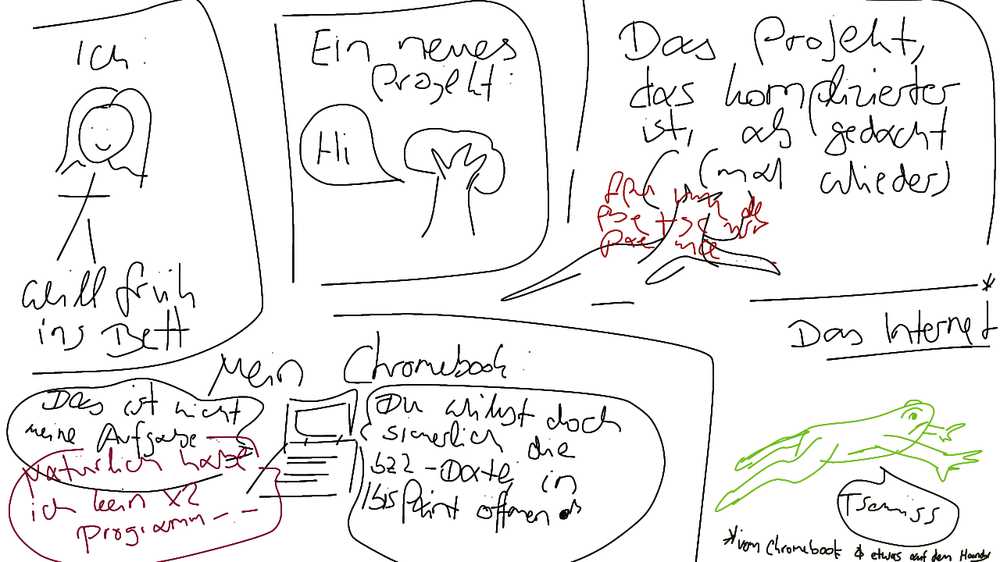 Ich:
will früh
ins Bett
Ein neues
Projekt:
Hi
Das Projekt,
das komplizierter
ist, als gedacht
(mal wieder)
Mein Chromebook:
Das ist nicht
meine Aufgabe
Natürlich habe
ich kein X2
Programm - -
Du willst doch
sicherlich die
bz2-Datei in
ibisPaint öffnen
*
Das Internet
Tschüss
*vom Chromebook & etwas auf dem